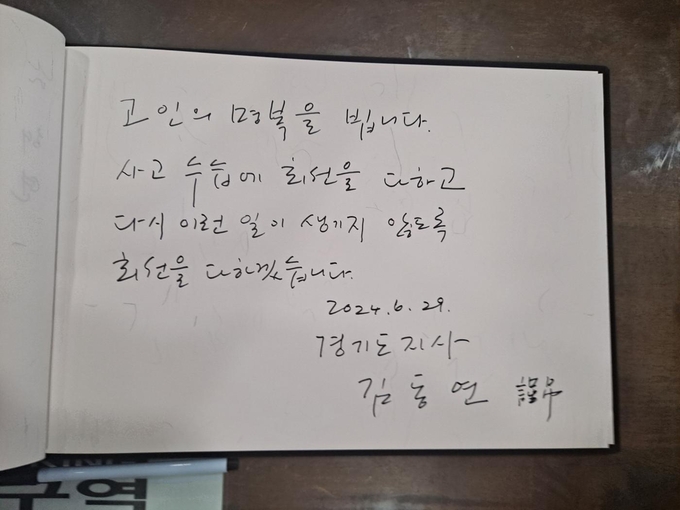 고인의 명복을 빕니다.
사고 수습에 최선을 다하고
다시 이런 일이 생기지 않도록
최선을 다하겠습니다.
2024.6.29.
경기도지사
김동연
구역